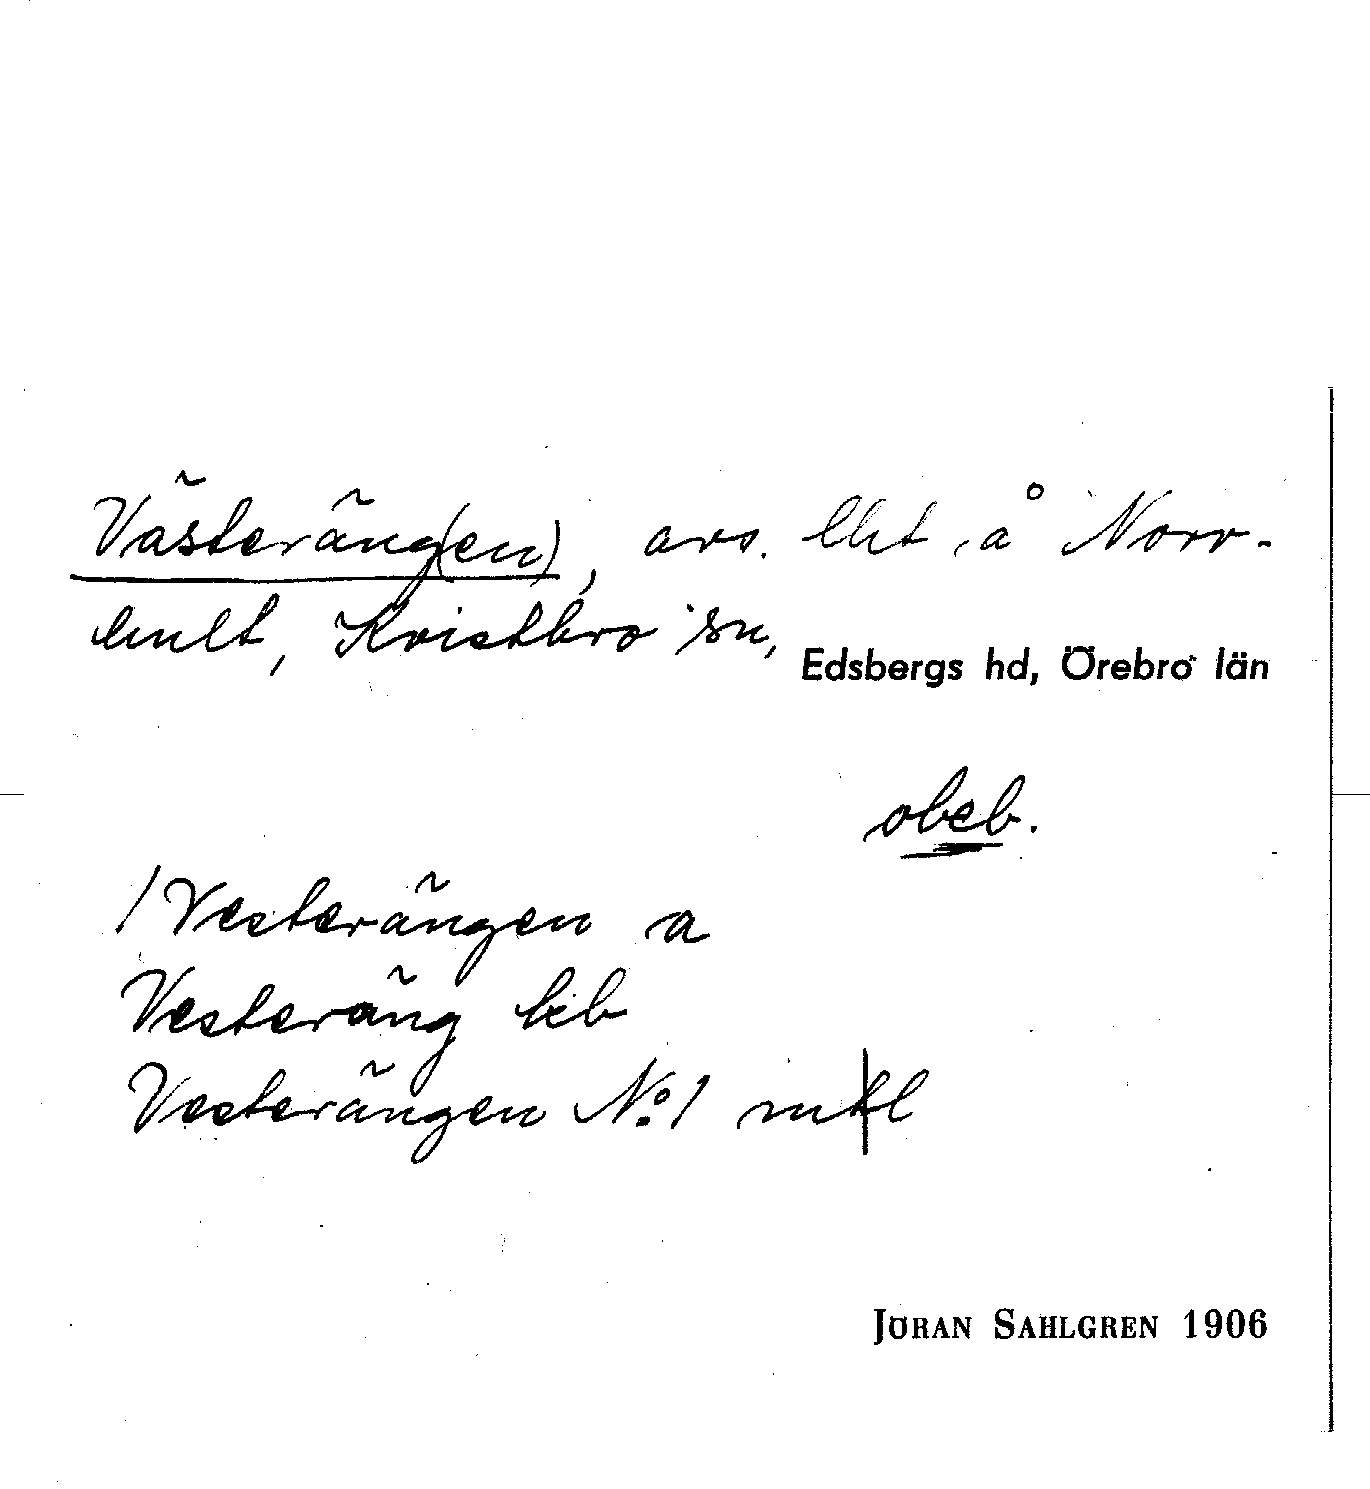 Västeräng(en), avs. lht å Norr-
hult, Kvistbro sn,
Edsbergs hd, Örebro län
obeb.
/Vesterängen a
Vesteräng
Vesterängen No: 1
JÖRAN SAHLGREN 1906